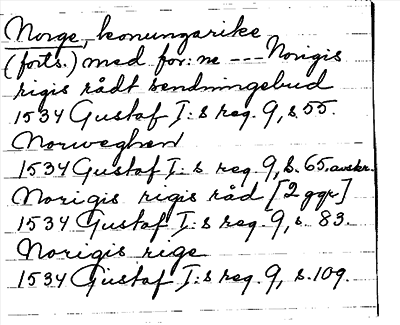 Norge, konungarike
(forts.) med for: ne --- Norigis
rigis rådt sendningebud
1534 Gustaf I:s reg. 9, s. 55.
Norweghen
1534 Gustaf I:s reg. 9, s. 65, avskr.
Norigis rigis råd [2 ggr]
1534 Gustaf I:s reg. 9, s. 83.
Norigis rige
1534 Gustaf I:s reg. 9, s. 109.